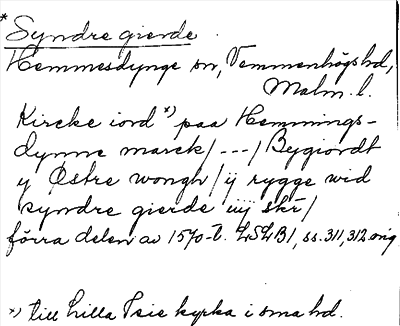 * Syndre gierde.
Hemmesdynge sn, Vemmenhögs hd,
Malm. l.
Kircke iord *) paa Hemmings-
dynne marck/---/Bygiordt
y Østre wongh/ij rygge wid
syndre gierde iiij skr/
förra delen av 1570-t. LSLB1, ss. 311, 312 orig
*) till Lilla Isie kyrka i sma hd.